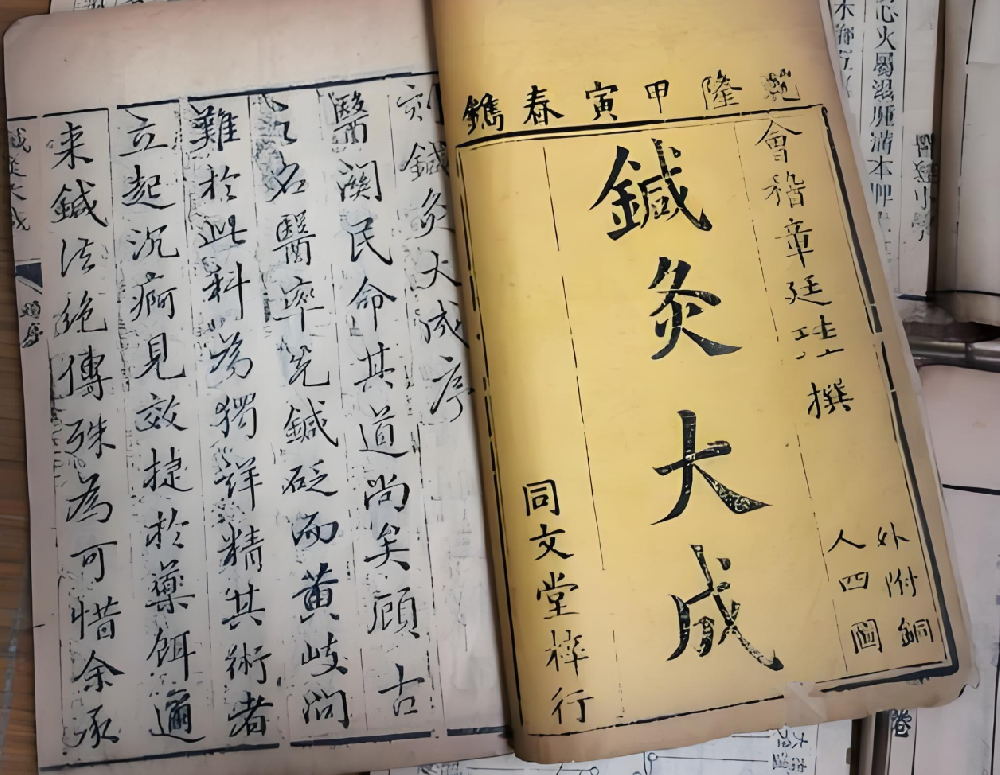 乾隆甲寅春鐫
會稽章廷珪撰
外附銅
人四圖
鍼灸大成
同文堂梓行
刻鍼灸大成序
醫關民命其道尚矣顧古
之名醫率先鍼砭而黃岐問
難於此科為獨詳精其術者
立起沉痾見效捷於藥餌邇
来鍼法絕傳殊為可惜余承
鍼灸大成